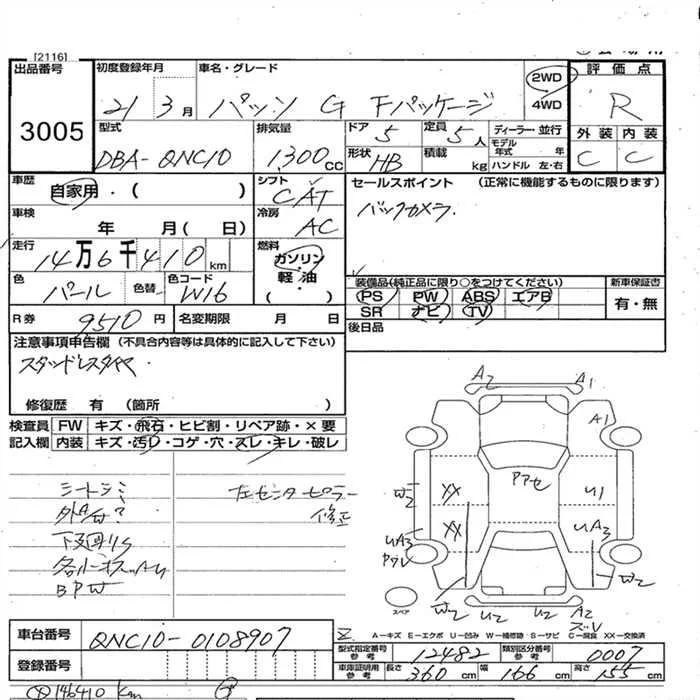 [2116]
出品番号
3005
初度登録年月
21 3月
車名・グレード
パッソ G Fパッケージ
2WD
4WD
評価点
R
外装 内装
C C
型式
DBA-QNC10
排気量
1300cc
ドア 5
定員 5人
形状 HB
積載 kg
ディーラー・並行
モデル年式 年
ハンドル 左・右
車歴
自家用・( )
シフト
CAT
車検
年 月( 日)
冷房
AC
走行
14万6千410km
燃料
ガソリン
軽・油
( )
色
パール
色替
色コード
W16
R券 9510円
名変期限 月 日
セールスポイント (正常に機能するものに限ります)
バックカメラ.
装備品(純正品に限り○をつけてください)
PS PW ABS エアB
SR ナビ TV
新車保証書
有・無
後日品
注意事項申告欄 (不具合内容等は具体的に記入して下さい)
スタッドレスタイヤ
修復歴 有 (箇所 )
検査員記入欄
FW キズ・飛石・ヒビ割・リペア跡・×要
内装 キズ・汚レ・コゲ・穴・スレ・キレ・破レ
シートシミ
下回りS
BPW
左センターピラー
修正
A2 A1
A1
W2
XX
XX
U1
UA3
UA3
W2
W2
U2
U2
A2
スペア
A-キズ E-エクボ U-凹み W-補修跡 S-サビ C-腐食 XX-交換済
車台番号
QNC10-0108907
登録番号
型式指定番号参考
12482
類別区分番号参考
0007
車庫証明用参考
長さ 360cm
幅 166cm
高さ 155cm
146410 km